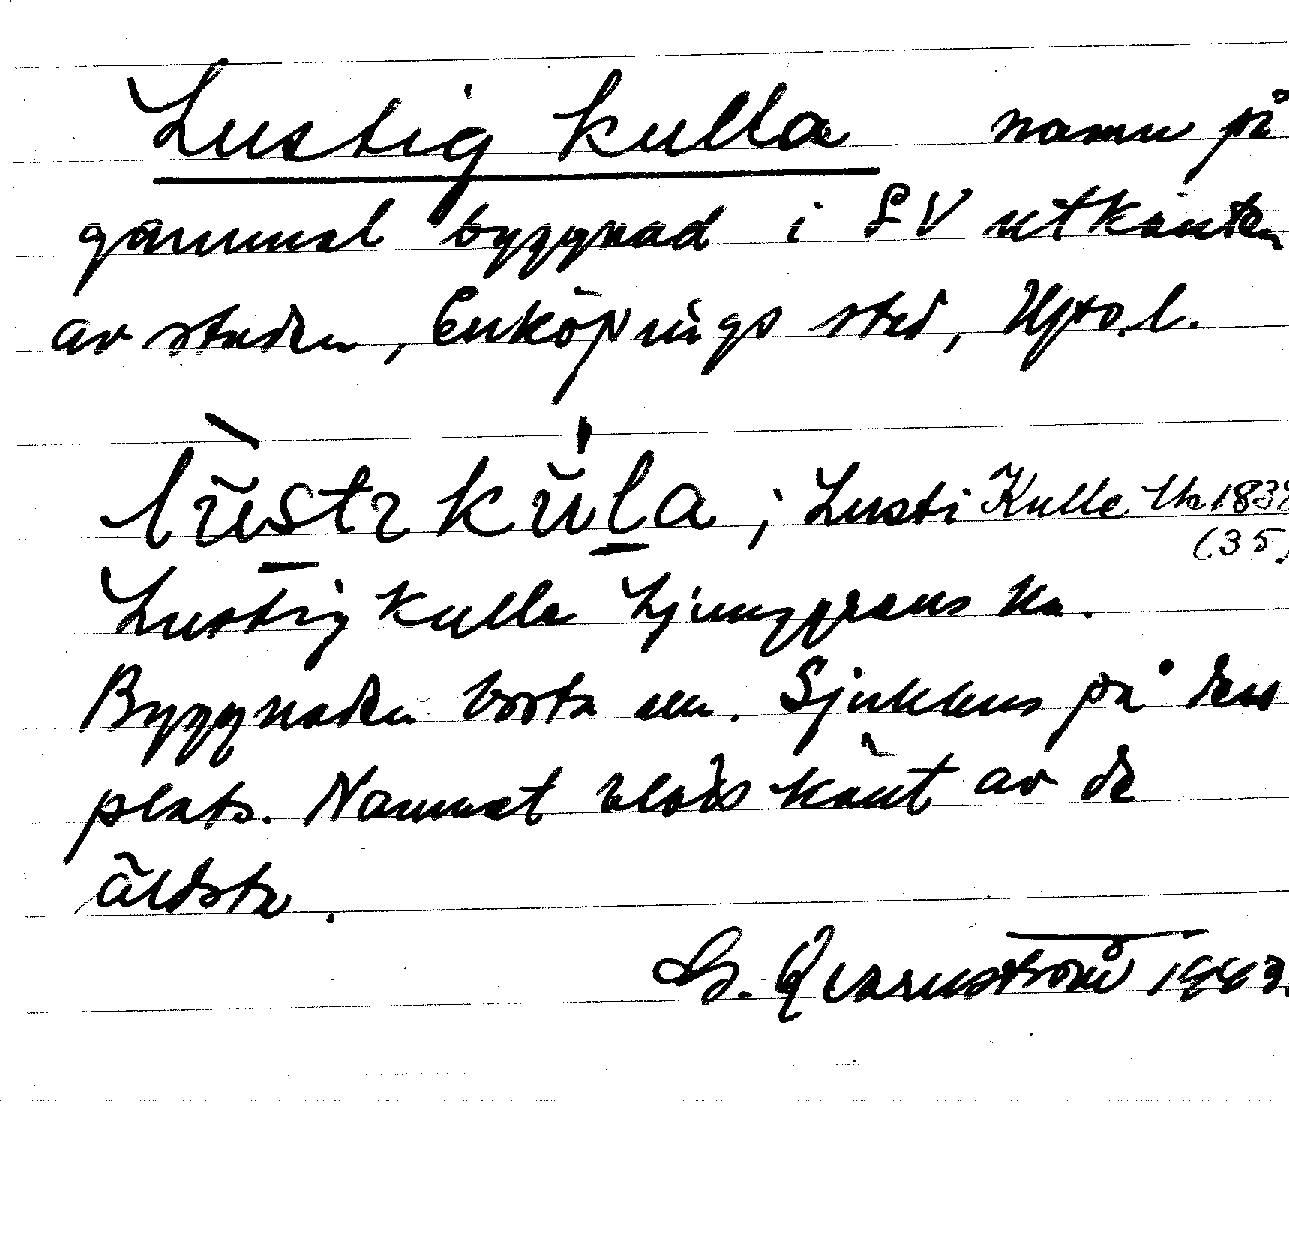 Lustig kulla namn på
gammal byggnad i SV utkanten
av staden, Enköpings stad, Uppl.
lustı kula ; Lusti Kulle Uk 183
(35)
Lustig kulle Ljunggrens ka.
Byggnaden borta nu. Sjukhus på dess
plats. Namnet blott känt av de
äldsta.
G. Qvarnström 1943.